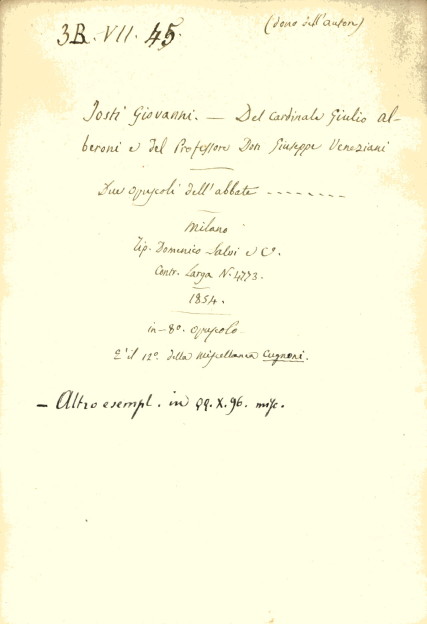 3B. VII. 45.
(dono dell'autore)
Josti Giovanni. — Del Cardinale Giulio Al-
beroni e del Professore Don Giuseppe Veneziani
Due opuscoli dell'abbate - - - - - - - -
Milano
Tip. Domenico Salvi e Cº.
Contr. Larga N. 4773.
1854.
in-8º. opuscolo
È il 12º. della Miscellanea Cugnoni.
— Altro esempl. in QQ. X. 96. misc.